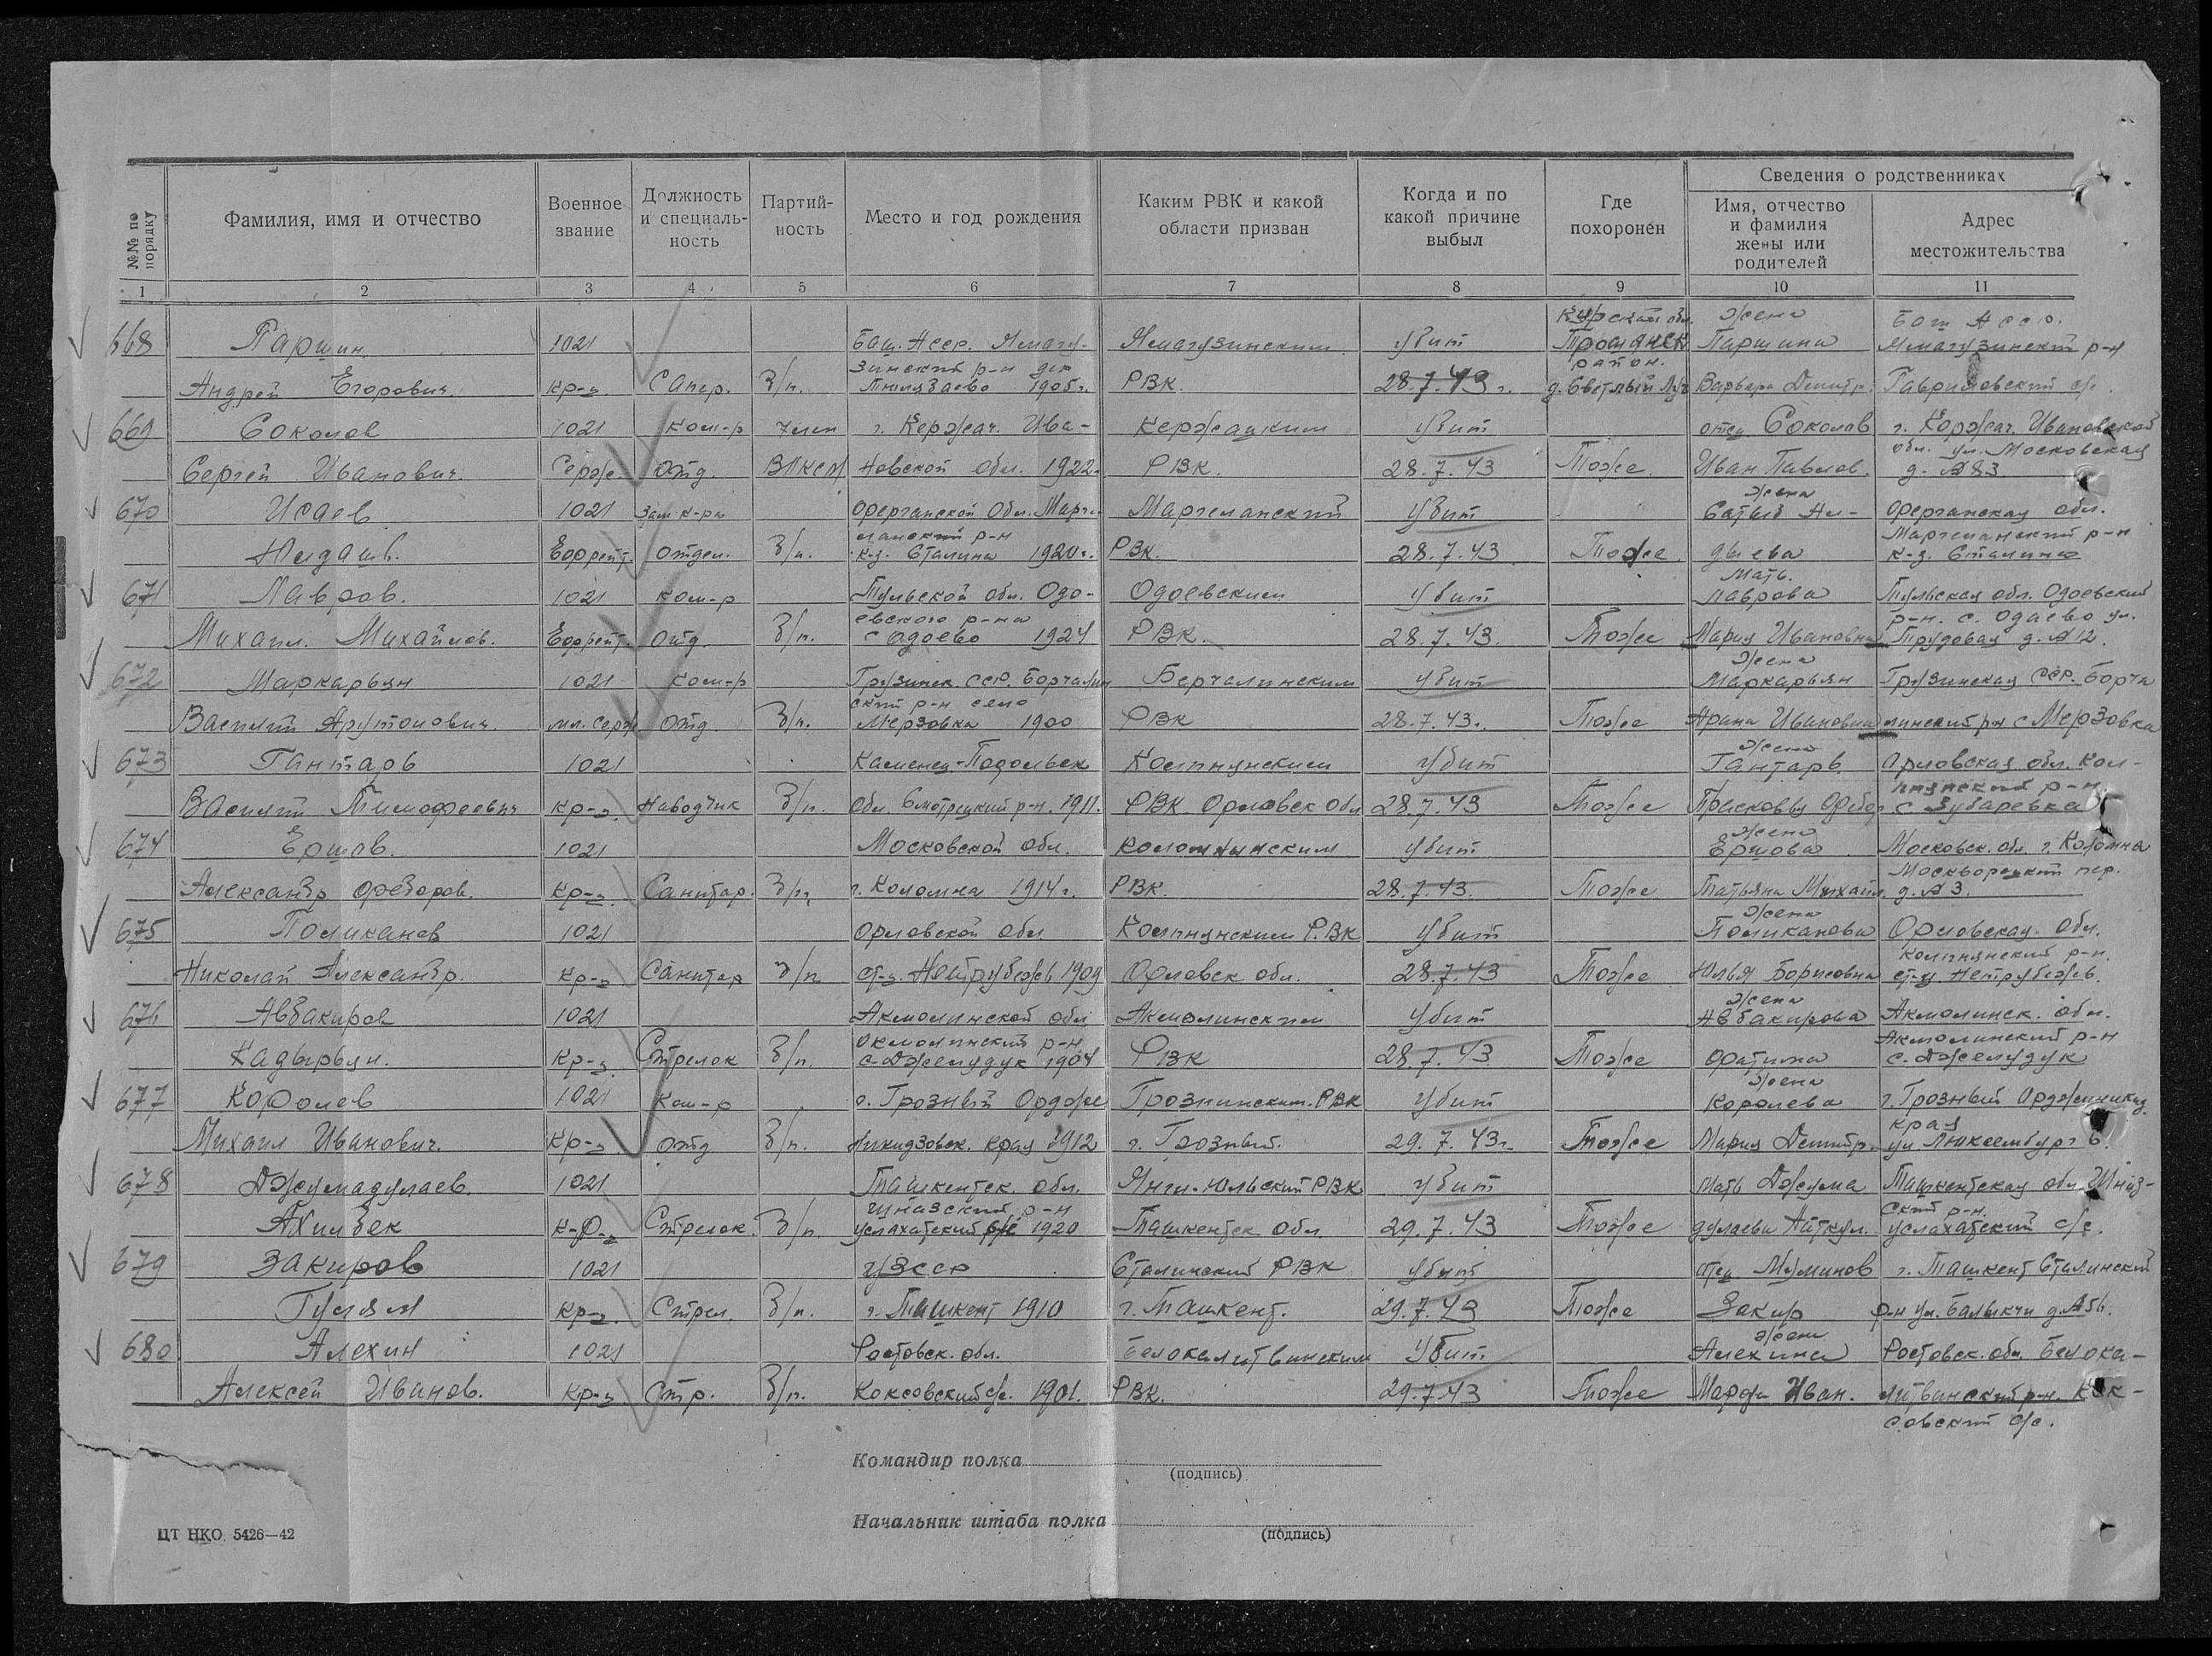 №№ по порядку
Фамилия, имя и отчество
Военное звание
Должность и специаль-ность
Партий-ность
Место и год рождения
Каким РВК и какой области призван
Когда и по какой причине выбыл
Где похоронен
Сведения о родственниках
Имя, отчество и фамилия жены или родителей
Адрес местожительства
1 2 3 4 5 6 7 8 9 10 11
Курской обл. жена Баш Асср.
668 Паршин 1021 Баш. Асср. Ямагу- Ямагузинским убит Троянск Паршина Ямагузинский р-н
зинский р-н дер район.
Андрей Егорович. кр-ц. Сапер. б/п. 1905г. РВК. 28.7.43г. д. Светлый Луч Варвара Дмитр. Гавриловский с/с
669 Соколов 1021 Ком-р член г. Кержач. Ива- Кержацким убит отец Соколов г. Коржач. Ивановской
обл. ул. Московская
Сергей Иванович. Серж. отд. ВЛКСМ новской обл. 1922г. РВК. 28.7.43 Тоже. Иван Павлов. д. №83
жена
670 Исаев 1021 Зам к-ра Ферганской Обл. Марги- Маргеланский убит Ферганская обл.
ланский р-н Маргиланский р-н
Ефрейт. отдел. б/п. к-з. Сталина 1920г. РВК. 28.7.43 Тоже к-з. Сталина
мать.
671 Лавров. 1021 ком-р Тульской обл. Одо- Одоевским убит Лаврова Тульская обл. Одоевский
евского р-на р-н. с. Одаево ул.
Михаил. Михайлов. Ефрейт. отд. б/п. с Одоево 1924 РВК. 28.7.43 Тоже Мария Ивановна Трудовая д. №12.
жена
672 Маркарьян 1021 ком-р Грузинск. ССР. Борчалин Берчалинским убит Маркарьян Грузинская ССР. Борча
ский р-н село
Василий Арутонович. мл. серж отд. б/п. Мерзовка 1900 РВК 28.7.43г. Тоже Арана Ивановна линский рн с Мерзовка
жена
673 Гантарь 1021 Каменец-Подольск Колпнунским убит Гантарь. Орловская обл. Кол-
пнянский р-н.
Василий Тимофеевич кр-ц. Наводчик б/п. обл. Смотрецкий р-н. 1911. РВК. Орловск обл 28.7.43 Тоже Прасковья Федор с. Зубаревка
жена
674 Ершов. 1021 Московской обл. Коломнынским убит Ершова Московск. обл. г. Коломна
Москворецкий пер.
Александр Федоров. кр-ц. Санитар. б/п. г. Коломна 1914г. РВК. 28.7.43. Тоже Татьяна Михайл. д. №3.
жена
675 Поликанов 1021 Орловской обл Колпнунским Р.ВК убит Поликанова Орловская. Обл.
Колпнянский р-н.
Николай Александр. кр-ц Санитар б/п 1909 Орловск обл. 28.7.43 Тоже Юлья Борисовна
жена
676 Авбакиров 1021 Акмолинской обл Акмолинским убит Авбакирова Акмолинск. обл.
Окмолинский р-н Акмолинский р-н
Кадырьян. кр-ц. Стрелок б/п. с. Джелудук 1904 РВК 28.7.43 Тоже Фатима с. Джелудук
жена
677 Королев 1021 Ком-р г. Грозный Ордже Грознинским. РВК убит Королева г. Грозный Орджиникид.
края
Михаил Иванович. кр-ц отд б/п. никидзовск. края 1912 г. Грозный. 29.7.43г. Тоже Мария Дмитр. ул Люксембург 6.
678 Джумадулаев. 1021 Ташкентск. обл. Янги-Юльский РВК убит мать Джума Ташкентская обл. Чиназ-
Чиназский р-н ский р-н.
Ахилбек к-р-ц Стрелок. б/п. услахатский с/с 1920 Ташкентск обл 29.7.43 Тоже дулаева Айткул. услахатский с/с.
679 Закиров 1021 УзССР Сталинский РВК убит отец Муминов г. Ташкент Сталинский
Гулям кр-ц. Стрел. б/п. г. Ташкент 1910 г. Ташкент. 29.7.43 Тоже Закир р-н ул. Балыкчи д.№56.
жена
680 Алехин 1021 Ростовск. обл. Белокалитвинским убит Алехина Ростовск. обл. Белока-
Алексей Иванов. кр-ц Стр. б/п. Коксовский с/с. 1901. РВК. 29.7.43 Тоже Марфа Иван. литвинский р-н. Кок-
совский с/с.
Командир полка
(подпись)
Начальник штаба полка
(подпись)
ЦТ НКО 5426—42